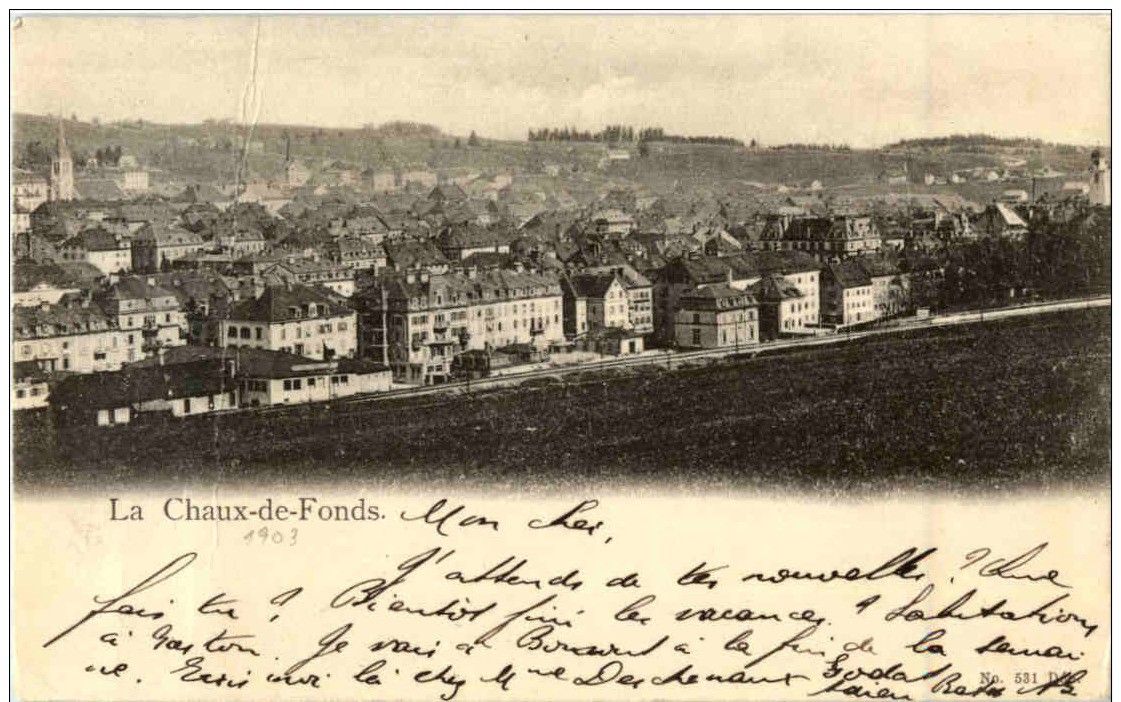 La Chaux-de-Fonds. Mon cher,
1903
J'attends de tes nouvelles. Que
fais tu ? Bientôt fini les vacances ? Salutations
à Gaston. Je vais à la fin de la semai
ne. Ecris moi là chez Mme Deschenaux
No. 531